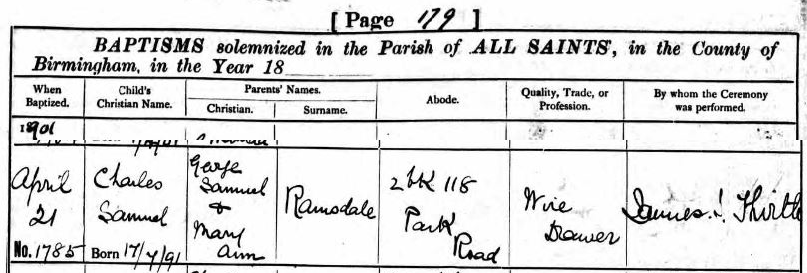 [ Page 179 ]
BAPTISMS solemnized in the Parish of ALL SAINTS', in the County of
Birmingham, in the Year 18
When Baptized.
Child's Christian Name.
Parents' Names.
Christian.
Surname.
Abode.
Quality, Trade, or Profession.
By whom the Ceremony was performed.
1901
April
21
No. 1785
Charles
Samuel
Born 17/7/91
George
Samuel
&
Mary
Ann
Ramsdale
2 bk 118
Park
Road
Wire
Drawer
James J. Thirtle